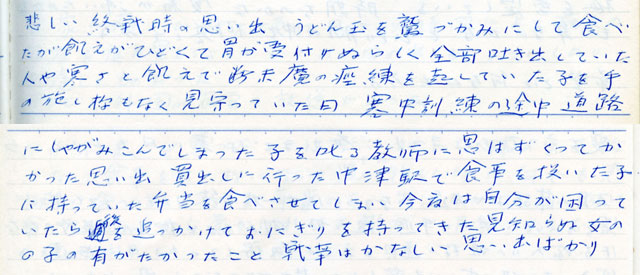 悲しい 終戦時の思い出 うどん玉を鷲づかみにして食べ
たが飢えがひどくて胃が受付けぬらしく全部吐き出していた
人や寒さと飢えで断末魔の痙練を起していた子を手
の施し様もなく見守っていた日 寒中訓練の途中道路
にしゃがみこんでしまった子を叱る教師に思はずくってか
かった思い出 買出しに行った中津駅で食事を抜いた子
に持っていた弁当を食べさせてしまい今度は自分が困って
いたら後を追っかけておにぎりを持ってきた見知らぬ女の
の子の有がたかったこと 戦争はかなしい思い出ばかり